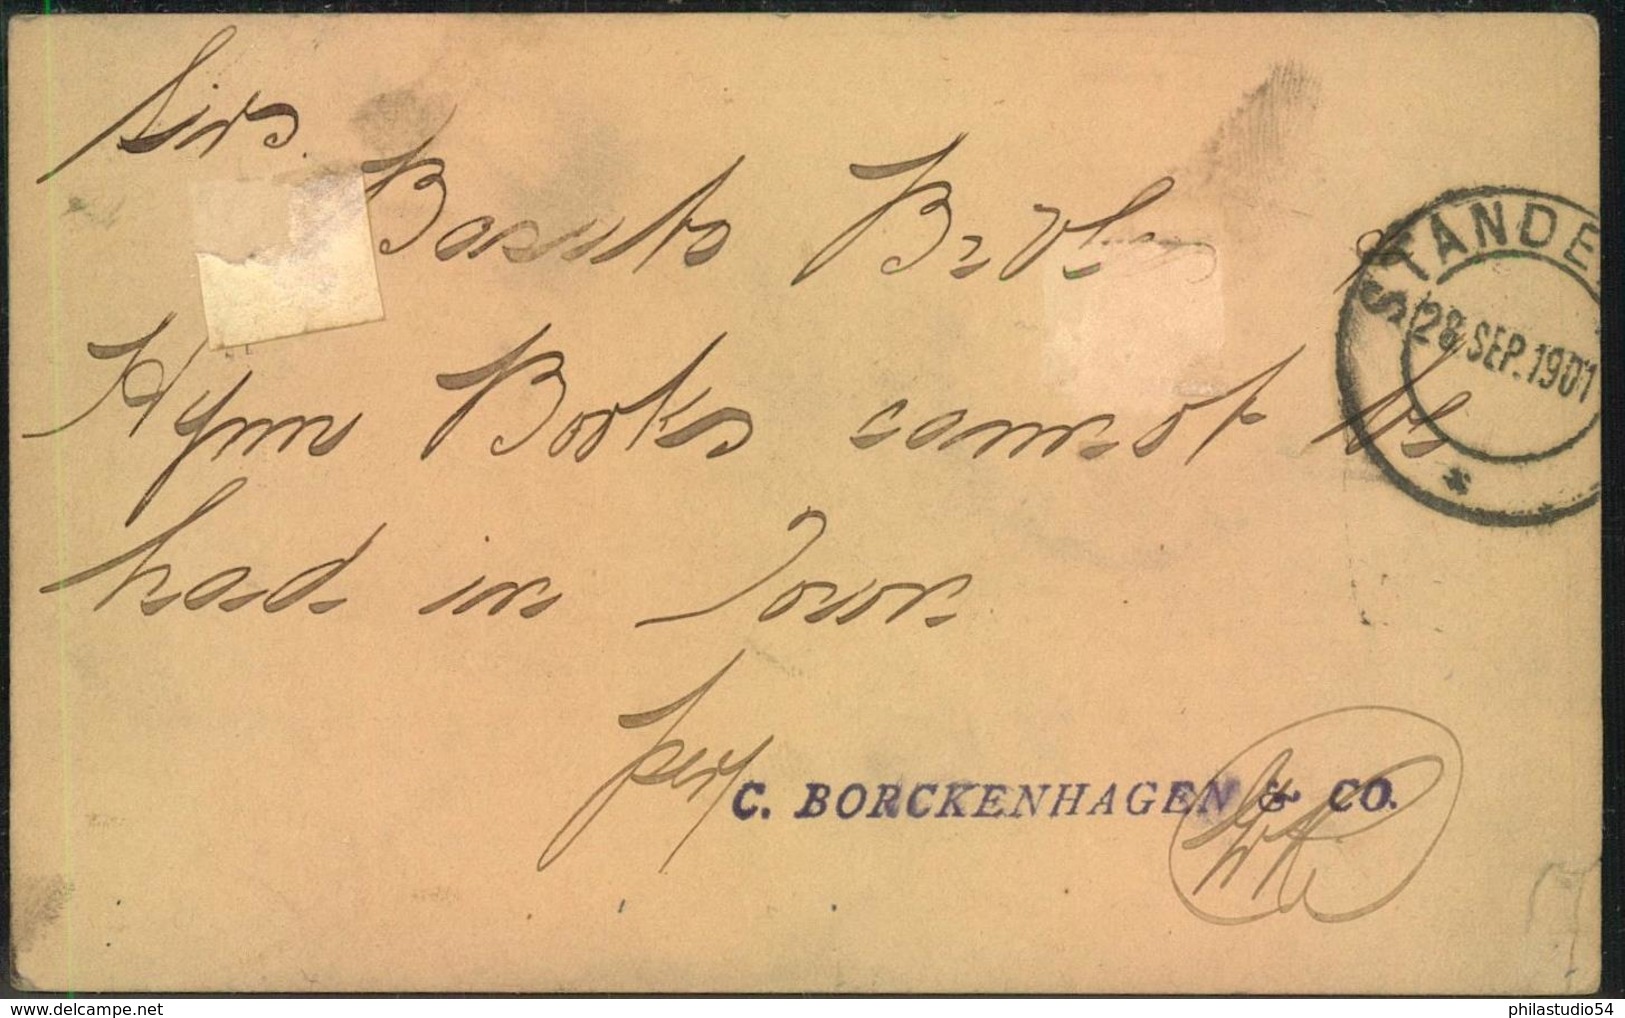 Sirs.
Basuto Bibles &
Hymn Books cannot be
had in Town
per C. BORCKENHAGEN & CO.
STANDE
28 SEP. 1901
*
philastudio54
delcampe.net